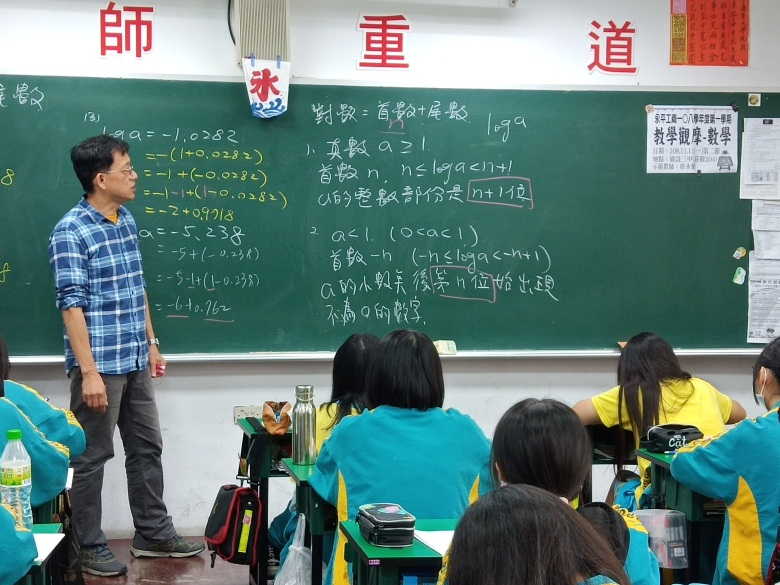 師 重 道
冰
尾數
(3)
log a = -1.0282
= -(1+0.0282)
= -1+(-0.0282)
= -1-1+(1-0.0282)
= -2+0.9718
a = -5.238
= -5+(-0.238)
= -5-1+(1-0.238)
= -6+0.762
對數 = 首數+尾數
n
log a
1. 真數 a ≥ 1.
首數 n, n ≤ log a < n+1
a的整數部份是 n+1位
2. a<1. (0<a<1)
首數 -n (-n ≤ log a < -n+1)
a的小數點後第n位始出現
不為0的數字.
永平工商一〇八學年度第一學期
教學觀摩-數學